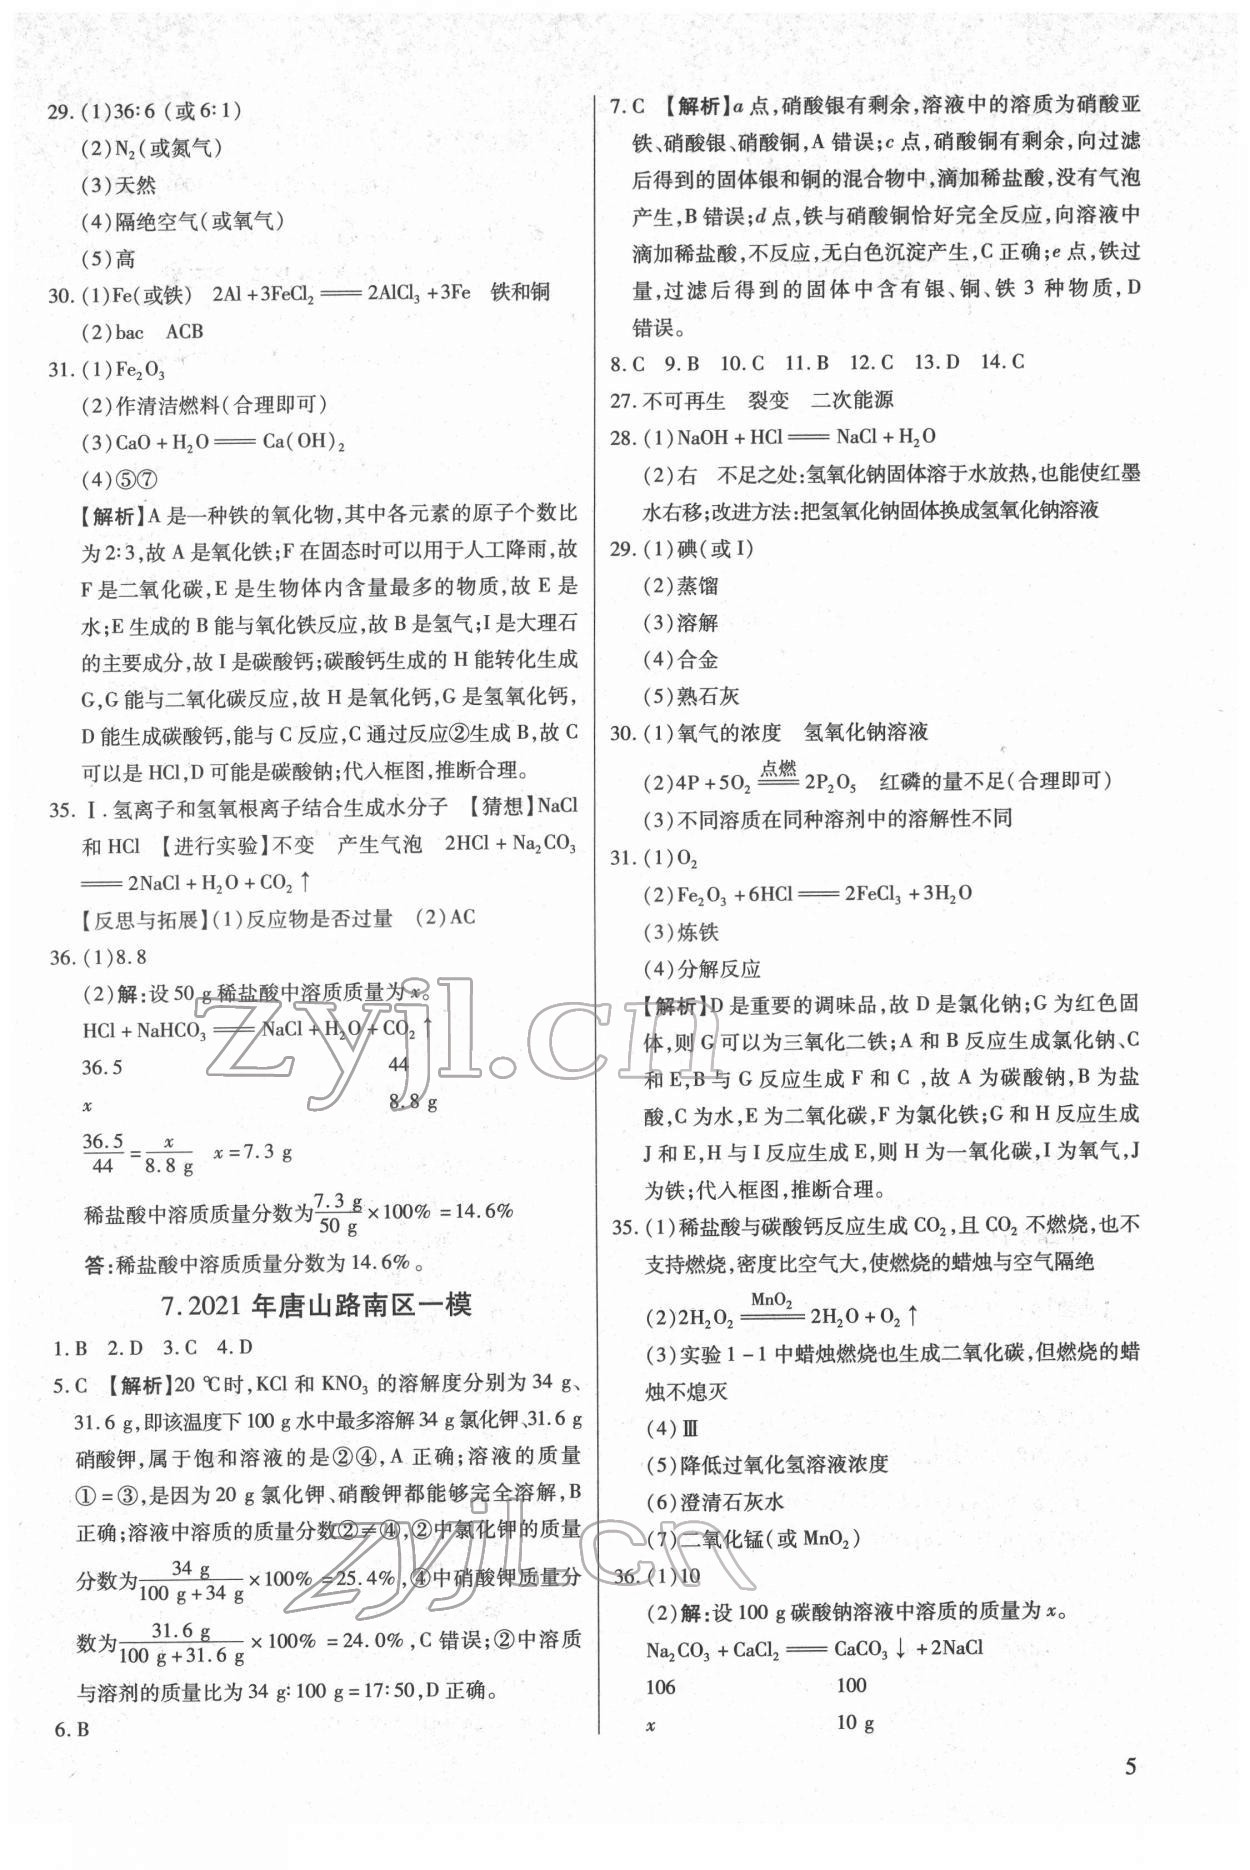 29. (1)36∶6 (或6∶1)
(2)N₂(或氮气)
(3)天然
(4)隔绝空气(或氧气)
(5)高
30. (1)Fe(或铁) 2Al+3FeCl₂══2AlCl₃+3Fe 铁和铜
(2)bac ACB
31. (1)Fe₂O₃
(2)作清洁燃料(合理即可)
(3)CaO+H₂O══Ca(OH)₂
(4)⑤⑦
【解析】A 是一种铁的氧化物,其中各元素的原子个数比
为2∶3,故 A 是氧化铁;F 在固态时可以用于人工降雨,故
F 是二氧化碳,E 是生物体内含量最多的物质,故 E 是
水;E 生成的 B 能与氧化铁反应,故 B 是氢气;I 是大理石
的主要成分,故 I 是碳酸钙;碳酸钙生成的 H 能转化生成
G,G 能与二氧化碳反应,故 H 是氧化钙,G 是氢氧化钙,
D 能生成碳酸钙,能与 C 反应,C 通过反应②生成 B,故 C
可以是 HCl,D 可能是碳酸钠;代入框图,推断合理。
35. Ⅰ.氢离子和氢氧根离子结合生成水分子 【猜想】NaCl
和 HCl 【进行实验】不变 产生气泡 2HCl+Na₂CO₃
══2NaCl+H₂O+CO₂↑
【反思与拓展】(1)反应物是否过量 (2)AC
36. (1)8.8
(2)解:设50 g稀盐酸中溶质质量为 x。
HCl+NaHCO₃══NaCl+H₂O+CO₂↑
36.5 44
x 8.8 g
36.5/44=x/8.8 g x=7.3 g
稀盐酸中溶质质量分数为7.3 g/50 g×100%=14.6%
答:稀盐酸中溶质质量分数为14.6%。
7.2021 年唐山路南区一模
1. B 2. D 3. C 4. D
5. C 【解析】20 ℃时,KCl 和 KNO₃ 的溶解度分别为 34 g、
31.6 g,即该温度下 100 g水中最多溶解34 g氯化钾、31.6 g
硝酸钾,属于饱和溶液的是②④,A 正确;溶液的质量
①=③,是因为20 g 氯化钾、硝酸钾都能够完全溶解,B
正确;溶液中溶质的质量分数②≠④,②中氯化钾的质量
分数为34 g/(100 g+34 g)×100%=25.4%,④中硝酸钾质量分
数为31.6 g/(100 g+31.6 g)×100%=24.0%,C 错误;②中溶质
与溶剂的质量比为 34 g∶100 g=17∶50,D 正确。
6. B
7. C 【解析】a 点,硝酸银有剩余,溶液中的溶质为硝酸亚
铁、硝酸银、硝酸铜,A 错误;c 点,硝酸铜有剩余,向过滤
后得到的固体银和铜的混合物中,滴加稀盐酸,没有气泡
产生,B 错误;d 点,铁与硝酸铜恰好完全反应,向溶液中
滴加稀盐酸,不反应,无白色沉淀产生,C 正确;e 点,铁过
量,过滤后得到的固体中含有银、铜、铁 3 种物质,D
错误。
8. C 9. B 10. C 11. B 12. C 13. D 14. C
27. 不可再生 裂变 二次能源
28. (1)NaOH+HCl══NaCl+H₂O
(2)右 不足之处:氢氧化钠固体溶于水放热,也能使红墨
水右移;改进方法:把氢氧化钠固体换成氢氧化钠溶液
29. (1)碘(或I)
(2)蒸馏
(3)溶解
(4)合金
(5)熟石灰
30. (1)氧气的浓度 氢氧化钠溶液
(2)4P+5O₂ ══点燃══ 2P₂O₅ 红磷的量不足(合理即可)
(3)不同溶质在同种溶剂中的溶解性不同
31. (1)O₂
(2)Fe₂O₃+6HCl══2FeCl₃+3H₂O
(3)炼铁
(4)分解反应
【解析】D 是重要的调味品,故 D 是氯化钠;G 为红色固
体,则 G 可以为三氧化二铁;A 和 B 反应生成氯化钠、C
和 E,B 与 G 反应生成 F 和 C,故 A 为碳酸钠,B 为盐
酸,C 为水,E 为二氧化碳,F 为氯化铁;G 和 H 反应生成
J 和 E,H 与 I 反应生成 E,则 H 为一氧化碳,I 为氧气,J
为铁;代入框图,推断合理。
35. (1)稀盐酸与碳酸钙反应生成 CO₂,且 CO₂ 不燃烧,也不
支持燃烧,密度比空气大,使燃烧的蜡烛与空气隔绝
(2)2H₂O₂ ══MnO₂══ 2H₂O+O₂↑
(3)实验 1-1 中蜡烛燃烧也生成二氧化碳,但燃烧的蜡
烛不熄灭
(4)Ⅲ
(5)降低过氧化氢溶液浓度
(6)澄清石灰水
(7)二氧化锰(或 MnO₂)
36. (1)10
(2)解:设 100 g碳酸钠溶液中溶质的质量为 x。
Na₂CO₃+CaCl₂══CaCO₃↓+2NaCl
106 100
x 10 g
5
zyjl.cn
zyjl.cn